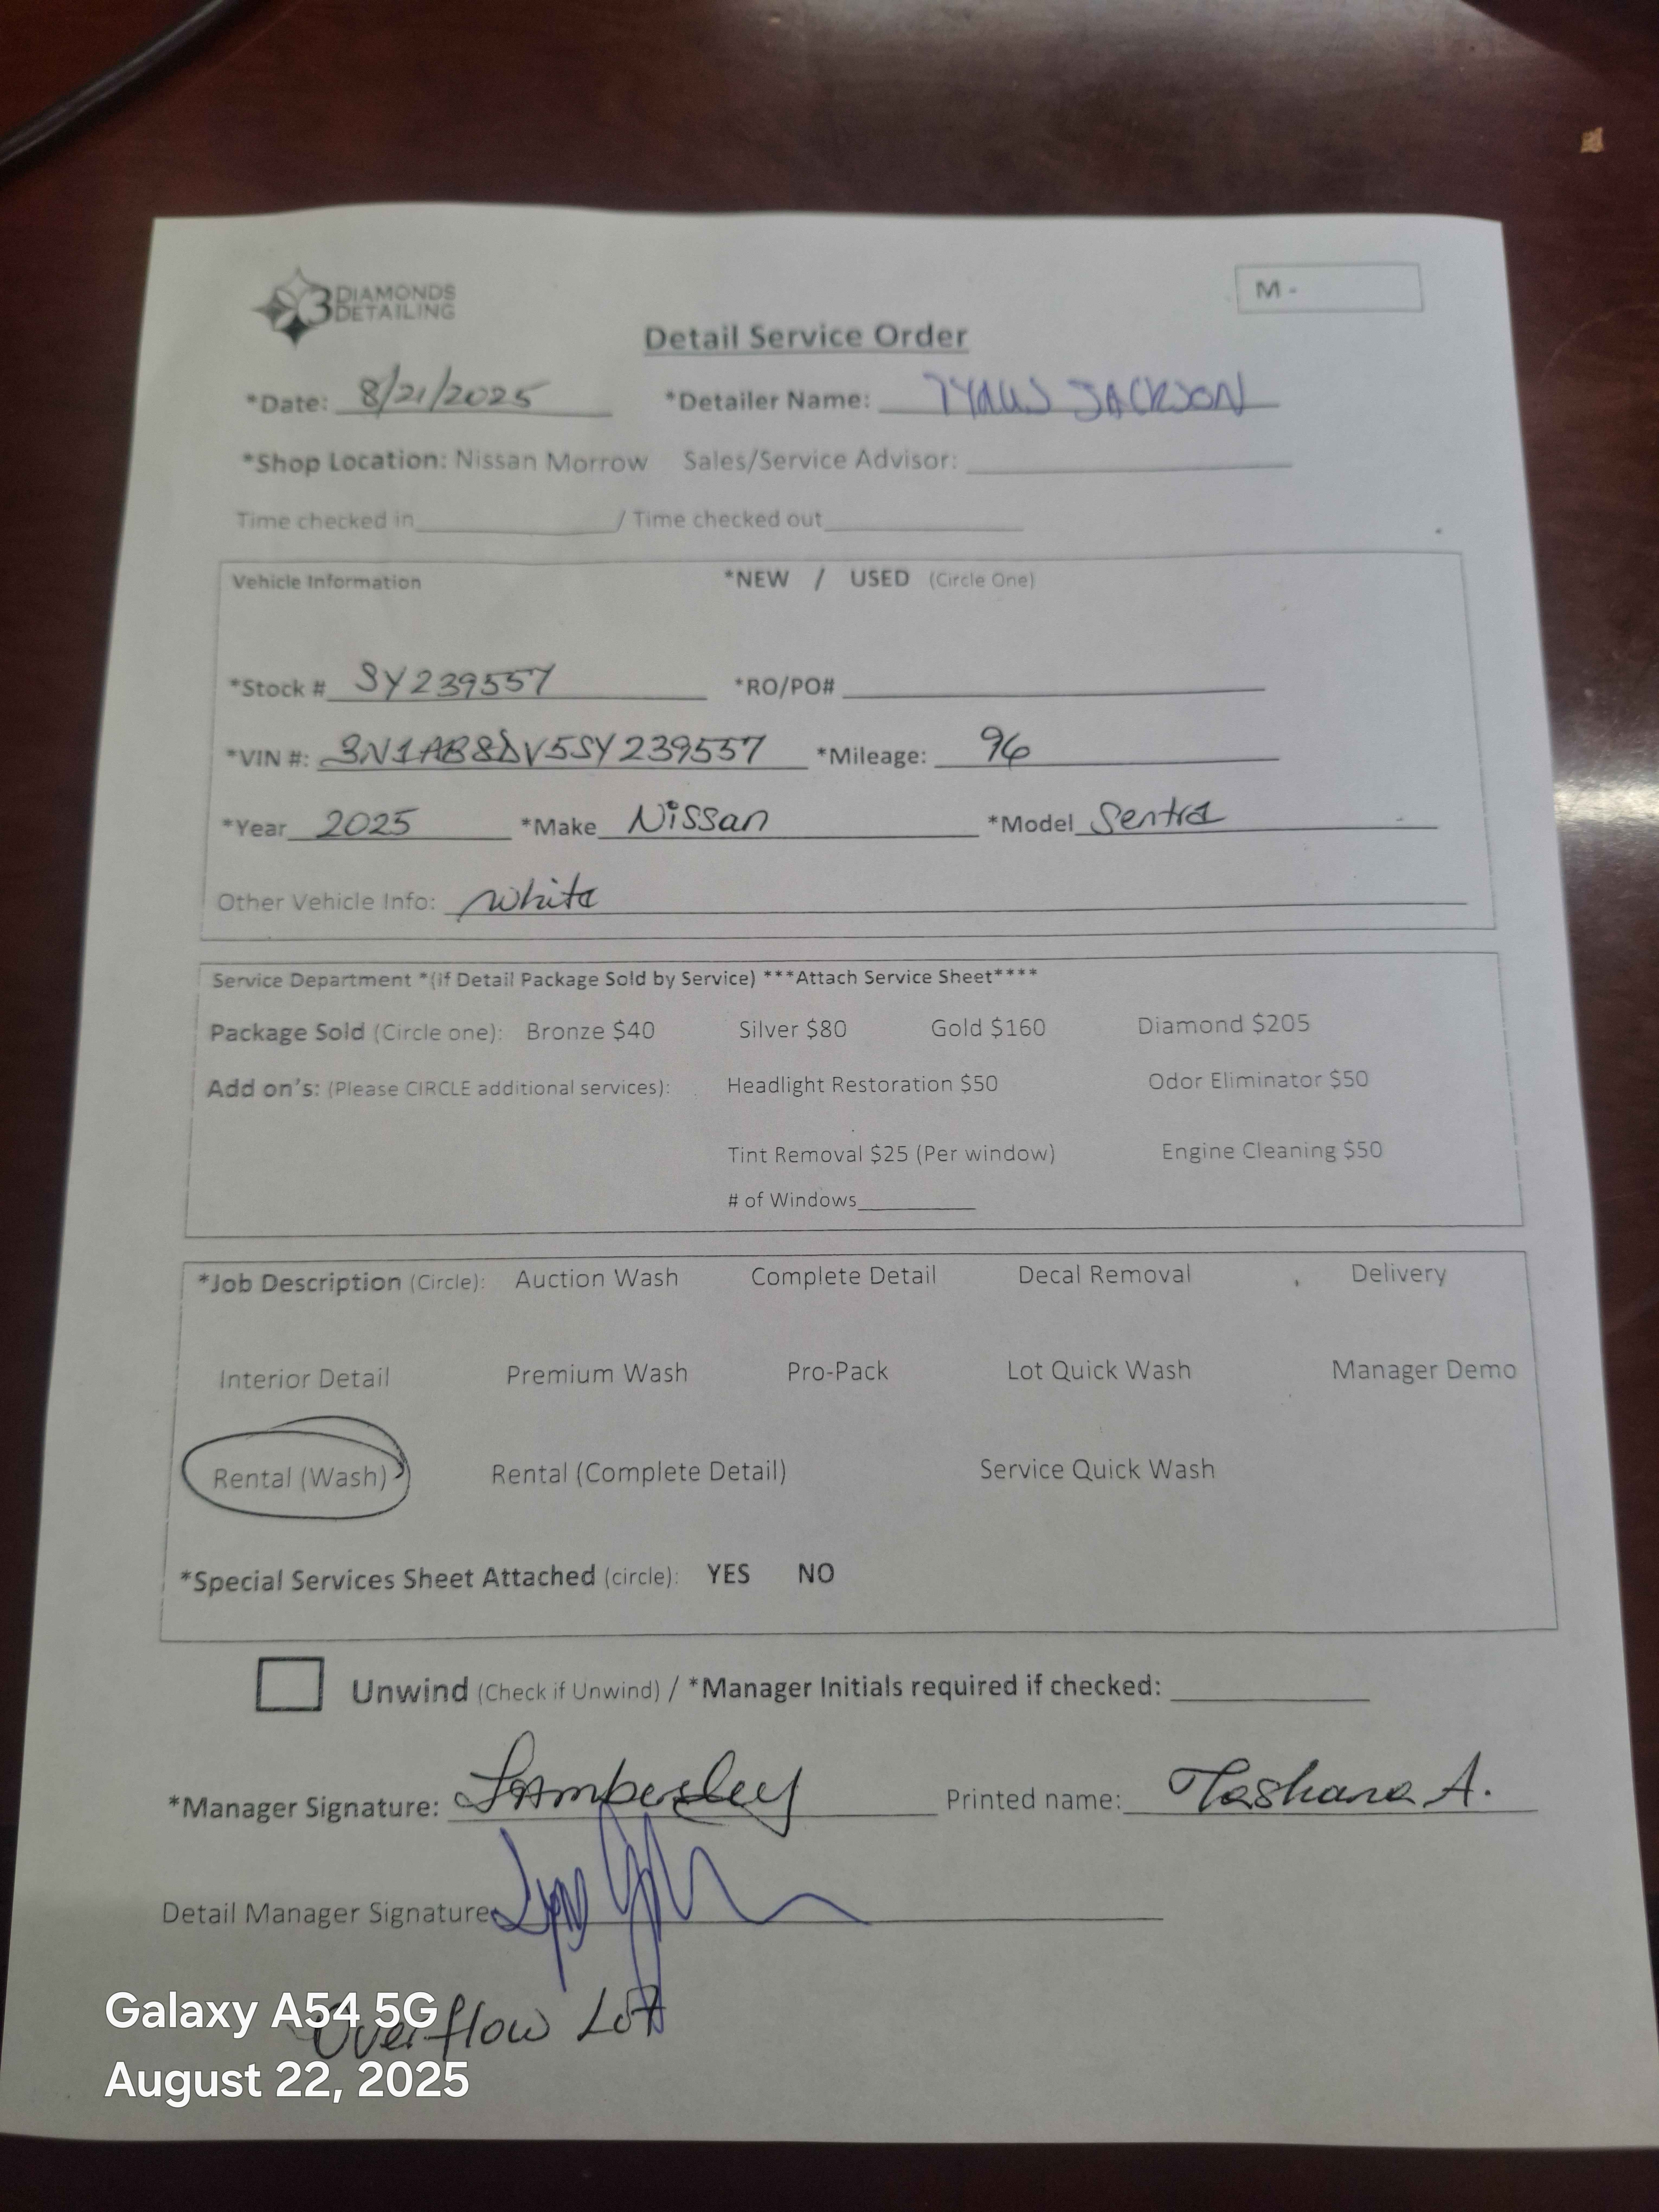 3 DIAMONDS
DETAILING
M -
Detail Service Order
*Date: 8/21/2025 *Detailer Name: JACKSON
*Shop Location: Nissan Morrow Sales/Service Advisor:
Time checked in / Time checked out
Vehicle Information *NEW / USED (Circle One)
*Stock # SY239557 *RO/PO#
*VIN #: 3N1AB8DV5SY239557 *Mileage: 96
*Year 2025 *Make Nissan *Model Sentra
Other Vehicle Info: White
Service Department *(if Detail Package Sold by Service) ***Attach Service Sheet****
Package Sold (Circle one): Bronze $40 Silver $80 Gold $160 Diamond $205
Add on's: (Please CIRCLE additional services): Headlight Restoration $50 Odor Eliminator $50
Tint Removal $25 (Per window) Engine Cleaning $50
# of Windows
*Job Description (Circle): Auction Wash Complete Detail Decal Removal Delivery
Interior Detail Premium Wash Pro-Pack Lot Quick Wash Manager Demo
Rental (Wash) Rental (Complete Detail) Service Quick Wash
*Special Services Sheet Attached (circle): YES NO
Unwind (Check if Unwind) / *Manager Initials required if checked:
*Manager Signature: Printed name: Tashana A.
Detail Manager Signature
Overflow Lot
Galaxy A54 5G
August 22, 2025